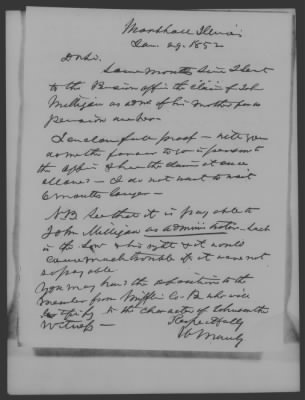 Marshall Illinois
Jan. 29. 1852
Dr Sir.
Some months since I sent
to the Pension office the claim of John
Milligan as admr of his mother for a
pension
I enclose full proof — will you
do me the favor to go in person to
the office & have the claim at once
allowed — I do not want to wait
6 months longer —
NB See that it is payable to
John Milligan as administrator. Such
is the law & his right & it would
cause much trouble if it was not
so payable
You may hand the depositions to the
member from Mifflin Co. Pa who will
testify to the character of
witness —
Respectfully